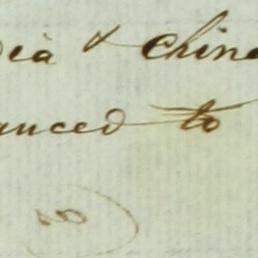 dia & Chine
anced to